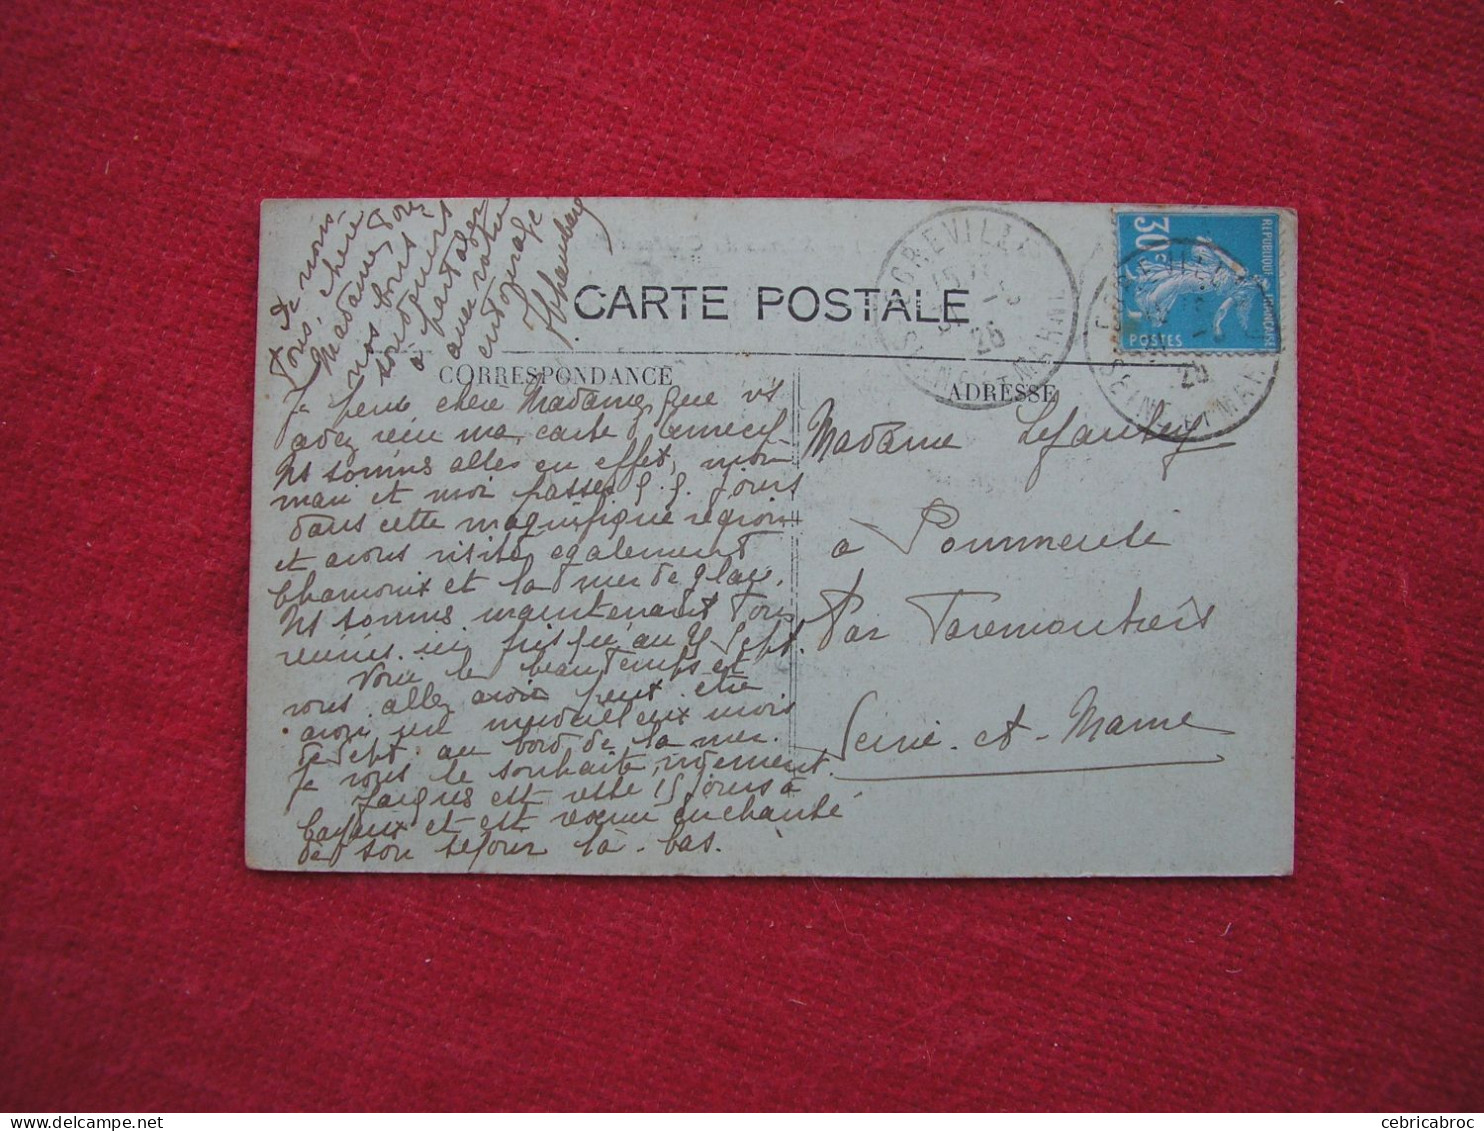 CARTE POSTALE
CORRESPONDANCE
ADRESSE
Je pense chère Madame, que vs
avez reçu ma carte d'Annecy
Ns sommes allés en effet, mon
mari et moi passer qq. jours
dans cette magnifique région
et avons visité également
Chamonix et la mer de glace.
Ns sommes maintenant tous
réunis ici jusqu'au Sept.
Voici le beau temps et
vous allez avoir peut être
avoir un merveilleux mois
de Sept. au bord de la mer.
Je vous le souhaite vivement.
Jacques est resté 15 jours à
Bayeux et est revenu enchanté
de son séjour là-bas.
De nous
tous, chère
Madame, pour
vos
toujours
à partager
avec votre
entourage
Madame Lefaubey
à Pommeuse
Par Faremoutiers
Seine-et-Marne
GREVILLE
SEINE ET MARNE
26
30c
POSTES
REPUBLIQUE FRANÇAISE
cebricabroc